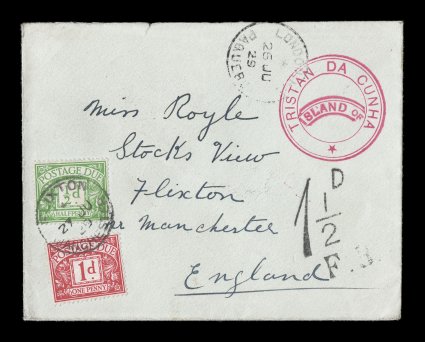 LONDON
PAQUEBOT
25 JU
29
TRISTAN DA CUNHA
ISLAND OF
Miss Royle
Stocks View
Flixton
nr Manchester
England
POSTAGE DUE
½d
HALFPENNY
POSTAGE DUE
1d
ONE PENNY
1½D
F.